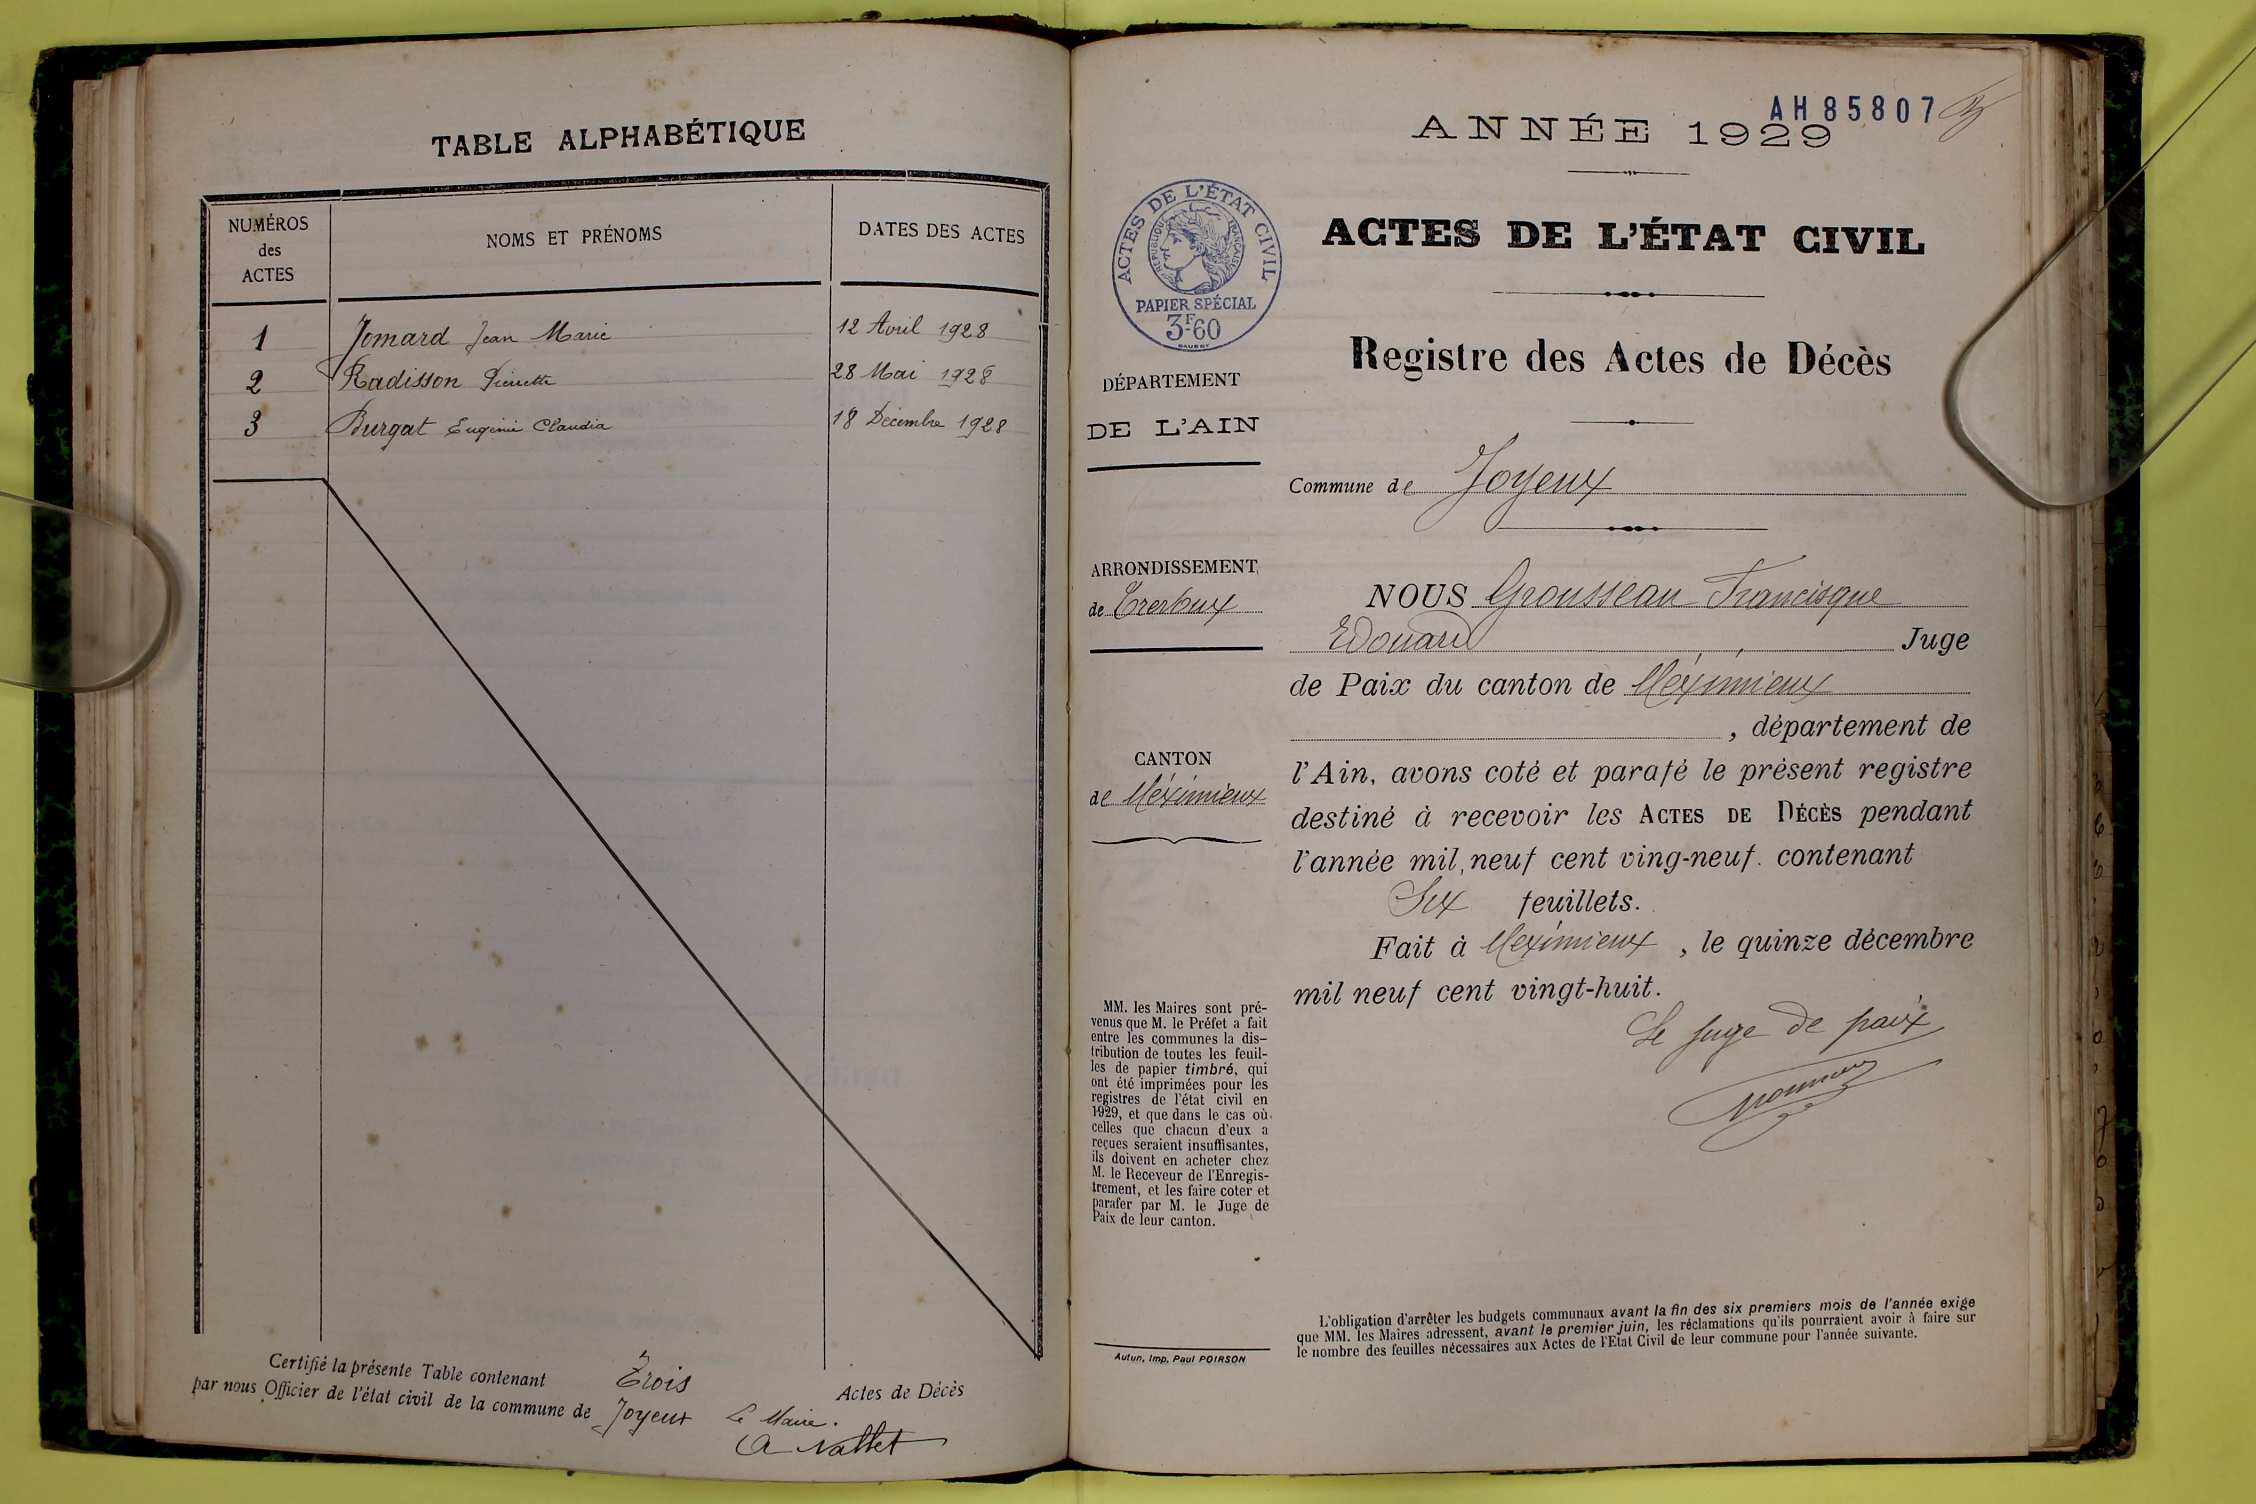 TABLE ALPHABÉTIQUE
NUMÉROS
des
ACTES
NOMS ET PRÉNOMS
DATES DES ACTES
1 Jomard Jean Marie 12 Avril 1928
2 Radisson Pierrette 28 Mai 1928
3 Burgat Eugénie Claudia 18 Décembre 1928
Certifié la présente Table contenant Trois Actes de Décès
par nous Officier de l'état civil de la commune de Joyeux Le Maire.
AH85807
ANNÉE 1929
ACTES DE L'ÉTAT CIVIL
RÉPUBLIQUE FRANÇAISE
PAPIER SPÉCIAL
3F60
ACTES DE L'ÉTAT CIVIL
Registre des Actes de Décès
DÉPARTEMENT
DE L'AIN
Commune de Joyeux
ARRONDISSEMENT
de Trévoux
CANTON
de Méximieux
NOUS Grousseau Francisque
Edouard Juge
de Paix du canton de Méximieux
, département de
l'Ain, avons coté et parafé le présent registre
destiné à recevoir les ACTES DE DÉCÈS pendant
l'année mil neuf cent ving-neuf. contenant
Six feuillets.
Fait à Meximieux, le quinze décembre
mil neuf cent vingt-huit.
Le juge de paix
MM. les Maires sont pré-
venus que M. le Préfet a fait
entre les communes la dis-
tribution de toutes les feuil-
les de papier timbré, qui
ont été imprimées pour les
registres de l'état civil en
1929, et que dans le cas où
celles que chacun d'eux a
reçues seraient insuffisantes,
ils doivent en acheter chez
M. le Receveur de l'Enregis-
trement, et les faire coter et
parafer par M. le Juge de
Paix de leur canton.
Autun, Imp. Paul POIRSON
L'obligation d'arrêter les budgets communaux avant la fin des six premiers mois de l'année exige
que MM. les Maires adressent, avant le premier juin, les réclamations qu'ils pourraient avoir à faire sur
le nombre des feuilles nécessaires aux Actes de l'Etat Civil de leur commune pour l'année suivante.